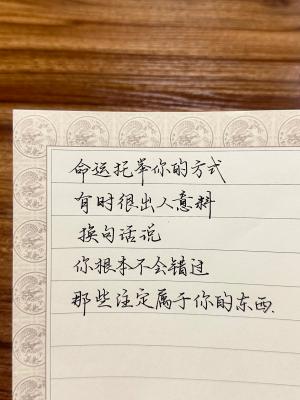 命运托举你的方式
有时很出人意料
换句话说
你根本不会错过
那些注定属于你的东西.